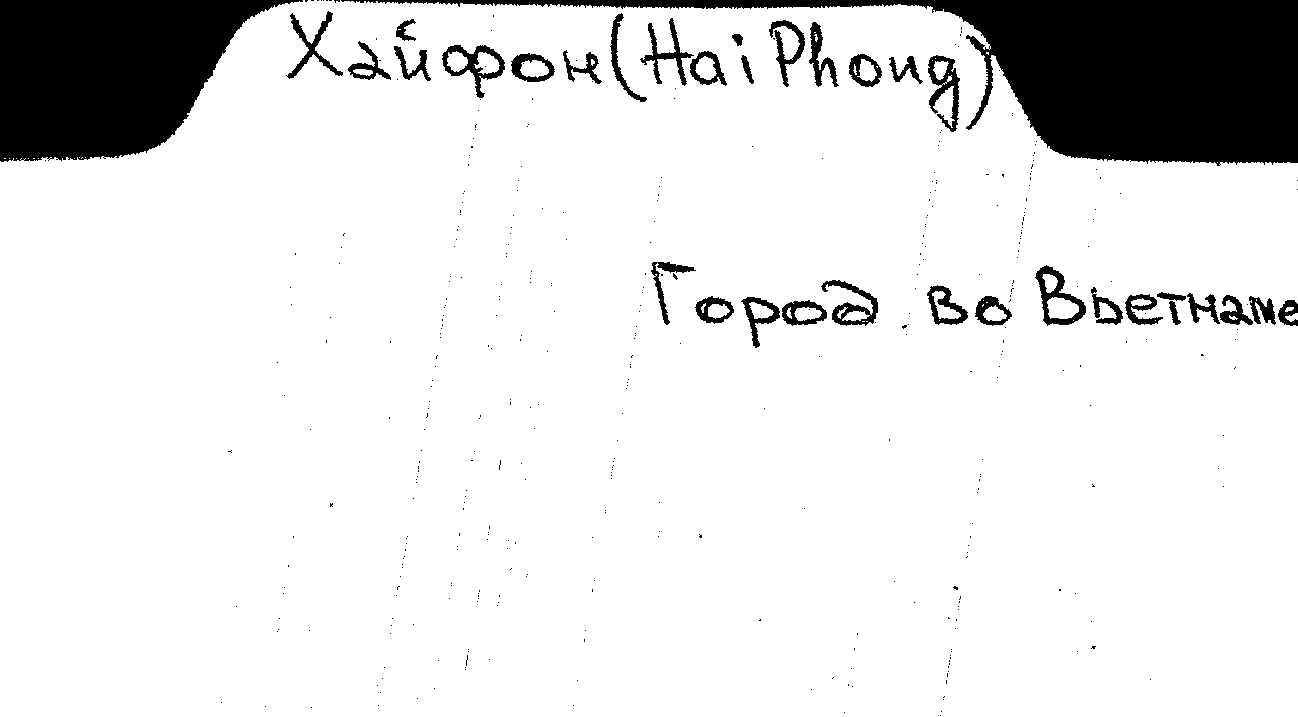 Хайфон (Hai Phong)
Город во Вьетнаме